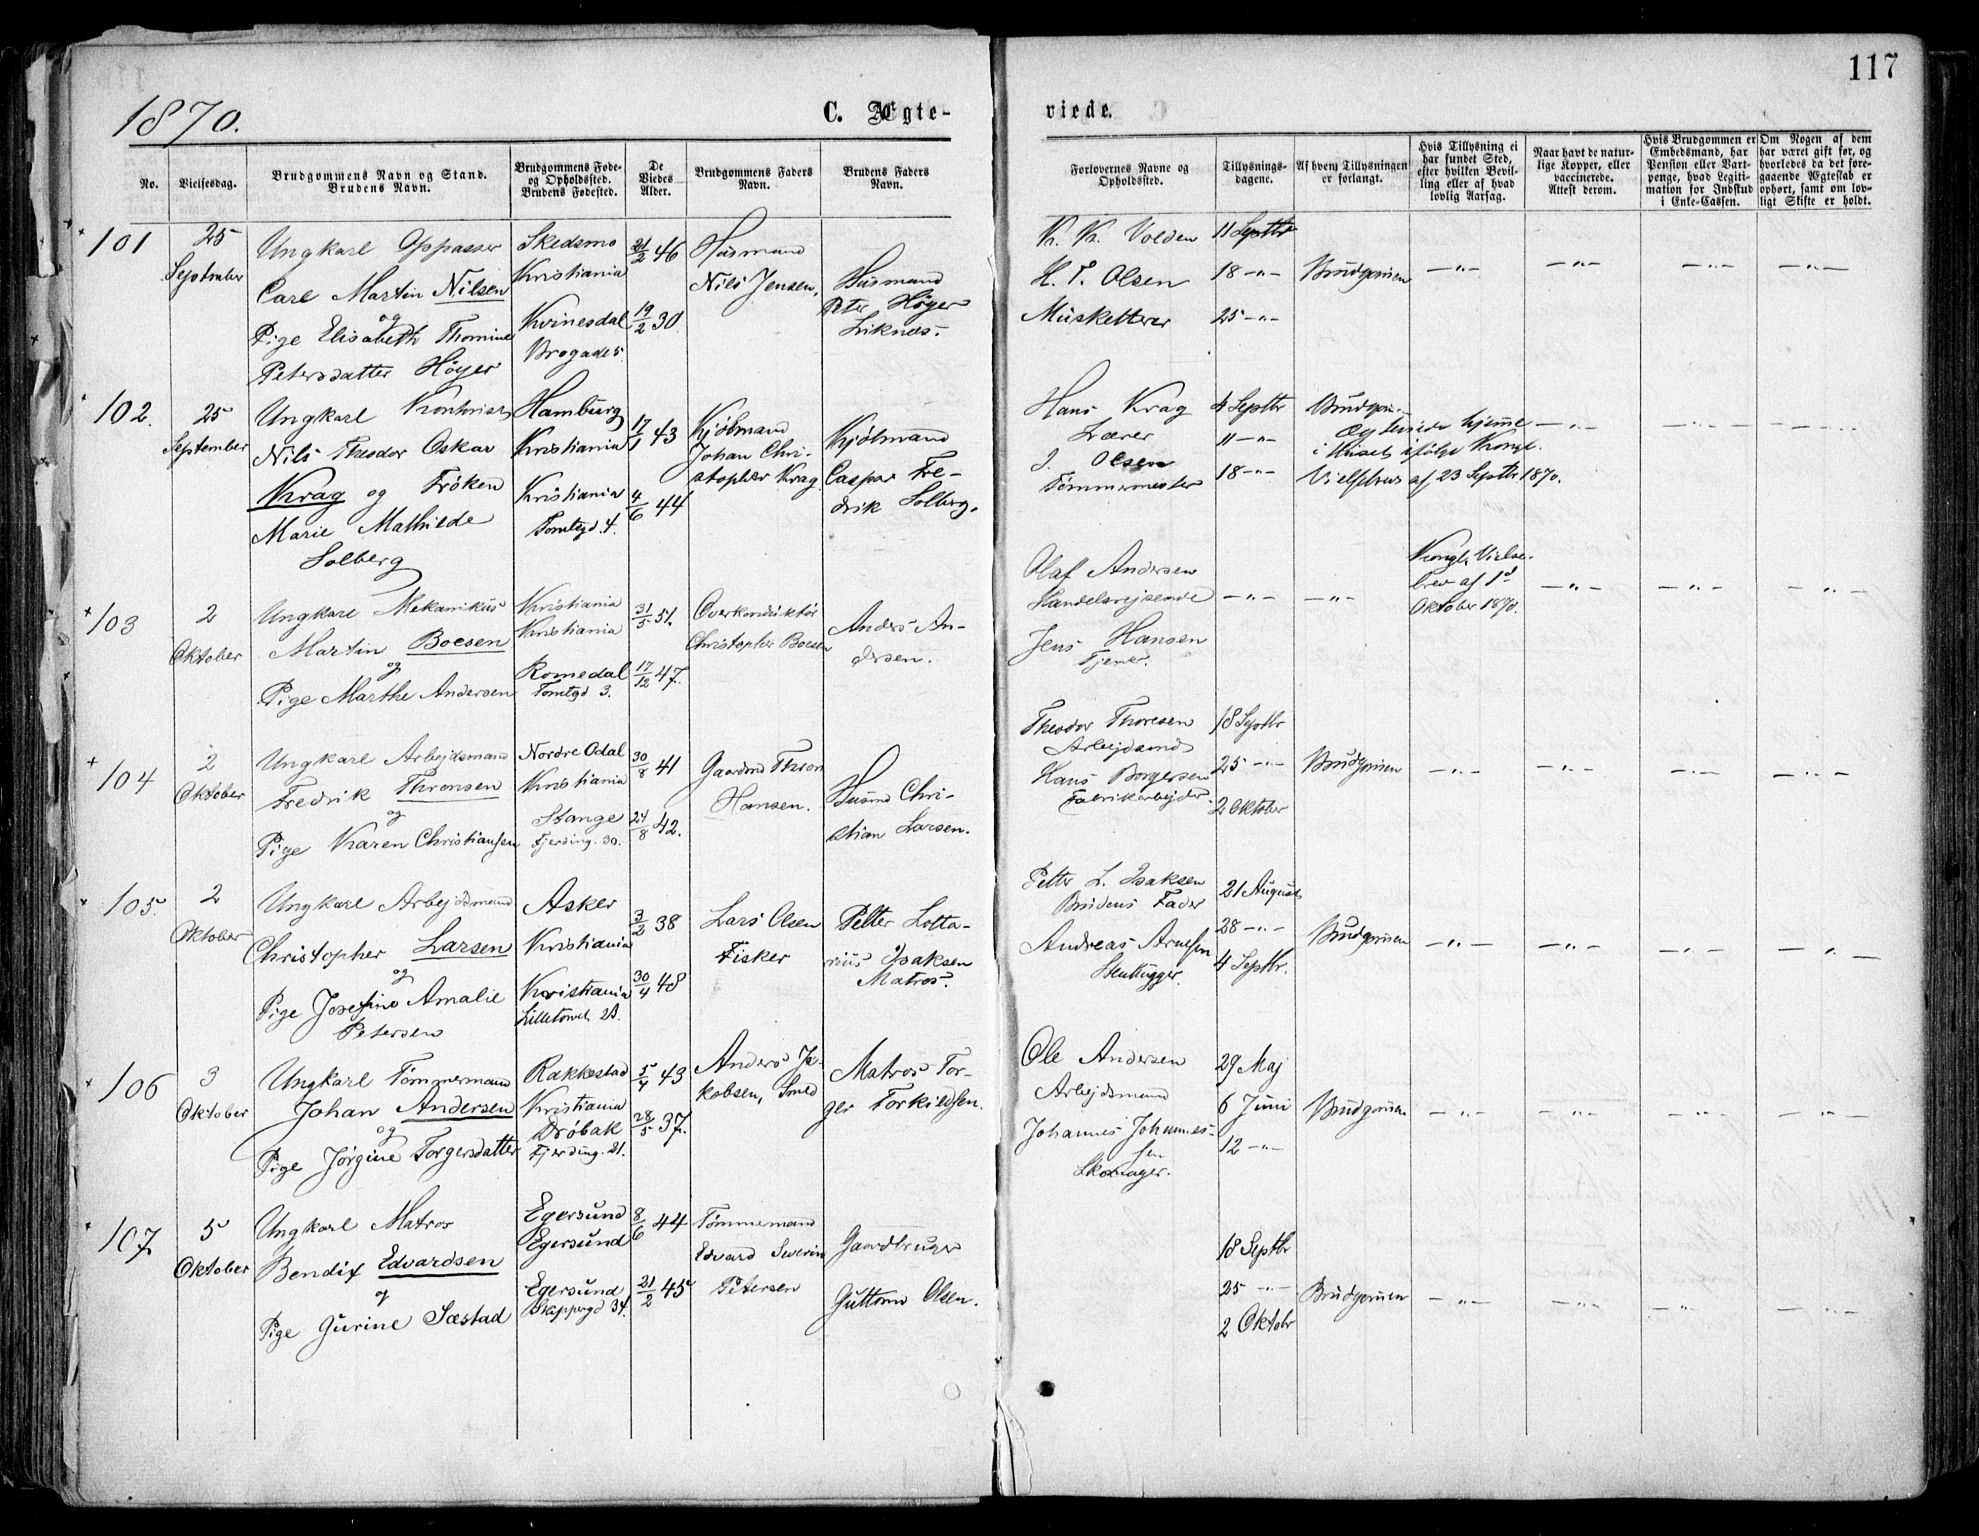 117
1870.
C. Ægte-
viede.
No.
Vielsesdag.
Brudgommens Navn og Stand.
Brudens Navn.
Brudgommens Føde-
og Opholdssted.
Brudens Fødested.
De
Viedes
Alder.
Brudgommens Faders
Navn.
Brudens Faders
Navn.
Forlovernes Navne og
Opholdssted.
Tillysnings-
dagene.
Af hvem Tillysningen
er forlangt.
Hvis Tillysning ei
har fundet Sted,
efter hvilken Bevil-
ling eller af hvad
lovlig Aarsag.
Naar havt de natur-
lige Kopper, eller
vaccinerede.
Attest derom.
Hvis Brudgommen er
Embedsmand, har
Pension eller Vart-
penge, hvad Legiti-
mation for Indskud
i Enke-Cassen.
Om Nogen af dem
har været gift før, og
hvorledes da det fore-
gaaende Ægteskab er
ophørt, samt om lov-
ligt Skifte er holdt.
101
25
September
Ungkarl Oppasser
Carl Martin Nilsen
og
Pige Elisabeth Thomine
Petersdatter Höyer
Skedsmo
Kristiania
Kvinesdal
Brogade 5.
21/2 46
19/2 30.
Husmand
Nils Jensen,
Husmand
Peter Höyer
Liknæs.
Kr. Kr. Volden
H. P. Olsen
Musketerer
11 Septbr
18 -"-
25 -"-
Brudgomen
-"- -"- -"- -"-
102.
25
September
Ungkarl Kontorist
Nils Theodor Oskar
Krag og Fröken
Marie Mathilde
Solberg
Hamburg
Kristiania
Kristiania
Tomtegd. 4.
17/1 43
4/6 44
Kjöbmand
Johan Chri-
stopher Krag
Kjöbmand
Caspar Fre-
drik Solberg.
Hans Krag
Lærer
J. Olsen
Tömmermester
4 Septbr
11 -"-
18 -"-
Brudgom
Ægteviede hjemme
i Huset ifölge Kongl.
Vielsebrev af 23 Septbr 1870.
-"- -"- -"-
103
2
Oktober
Ungkarl Mekanikus
Martin Boesen
og
Pige Marthe Andersen
Kristiania
Kristiania
Romedal
Tomtegd 3.
31/5 51.
17/12 47.
Overkonduktör
Christopher Boesen
Anders An-
dersen.
Olaf Andersen
Handelsrejsende
Jens Hansen
Tjener.
-"- -"-
Kongl. Vielse-
brev af 1ste
Oktober 1870.
-"- -"- -"-
104
2
Oktober
Ungkarl Arbejdsmand
Fredrik Thronsen
og
Pige Karen Christiansen
Nordre Odal
Kristiania
Stange
Fjerding. 30.
30/8 41
24/8 42.
Gaardmd Thron
Hansen.
Husmd Chri-
stian Larsen.
Theodor Thoresen
Arbejdsmd
Hans Borgersen
Fabrikarbejder.
18 Septbr
25 -"-
2 Oktober
Brudgomen
-"- -"- -"- -"-
105.
2
Oktober
Ungkarl Arbejdsmand
Christopher Larsen
og
Pige Josefine Amalie
Petersen
Asker
Kristiania
Kristiania
Lilletorvet 2B.
3/2 38
30/4 48
Lars Olsen
Fisker
Petter Lotta-
rius Isaksen
Matros.
Petter L. Isaksen
Brudens Fader
Andreas Arnesen
Stenhugger.
21 August
28 -"-
4 Septbr.
Brudgomen
-"- -"- -"- "
106
3
Oktober
Ungkarl Tömmermand
Johan Andersen
og
Pige Jörgine Torgersdatter
Rakkestad
Kristiania
Dröbak
Fjerding. 21.
5/4 43
28/5 37.
Anders Ja-
kobsen, Smed
Matros Tor-
ger Torkildsen.
Ole Andersen
Arbejdsmand
Johannes Johannes-
sen
Skomager.
29 Maj
6 Juni
12 -"-
Brudgomen
-"- -"- -"- -"-
107.
5
Oktober
Ungkarl Matros
Bendix Edvardsen
og
Pige Gurine Sæstad
Egersund
Egersund
Egersund
Skippergd 34.
8/6 44
21/2 45
Tömmermand
Edvard Severin
Petersen
Gaardbruger
Guttorm Olsen.
18 Septbr
25 -"-
2 Oktobr
Brudgomen
-"- -"- -"- -"-